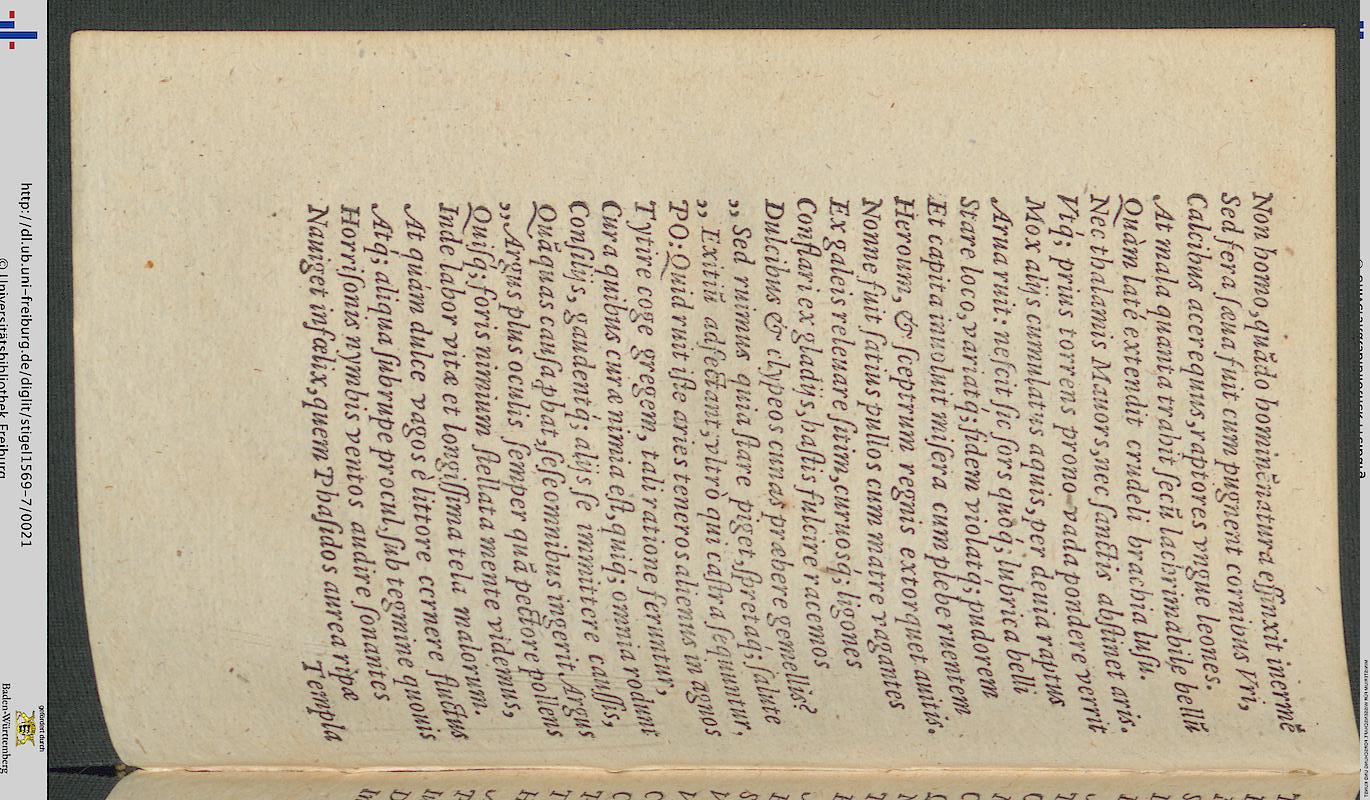 Non homo, quãdo hominẽ natura effinxit inermẽ
Sed fera ſæua fuit cum pugnent cornibus Vri,
Calcibus acer equus, raptores vngue leones.
At mala quanta trahit ſecũ lachrimabile bellũ
Quàm laté extendit crudeli brachia luſu.
Nec thalamis Mauors, nec ſanctis abſtinet aris.
Vtq́; prius torrens prono vada pondere verrit
Mox alijs cumulatus aquis, per deuia raptus
Arua ruit: neſcit ſic ſors quoq́; lubrica belli
Stare loco, variatq́; fidem violatq́; pudorem
Et capita inuoluit miſera cum plebe ruentem
Heroum, & ſceptrum regnis extorquet auitis.
Nonne fuit ſatius pullos cum matre vagantes
Ex gales releuare ſitim, curuosq́; ligones
Conflari ex gladijs, haſtis fulcire racemos
Dulcibus & clypeos cunas præbere gemellis?
„ Sed ruimus quia ſtare piget, ſpretaq́; ſalute
„ Extiũ adfectant, vltrò qui caſtra ſequuntur.
PO: Quid ruit iſte aries teneros alienus in agnos
Tytire coge gregem, tali ratione feruntur,
Cura quibus curæ nimia eſt, quiq́; omnia rodunt
Conſilijs, gaudentq́; alijs ſe immittere cauſſis,
Quãquas cauſa ꝓbat, ſeſe omnibus ingerit Argus
„ Argus plus oculis ſemper quã pectore pollens
Quiſq́; foris nimium ſtellata mente videmus,
Inde labor vitæ et longiſſima tela malorum.
At quám dulce vagos è littore cernere fluctus
Atq́; aliqua ſubrupe procul, ſub tegmine quouis
Horriſonis nymbis ventos audire ſonantes
Nauiget infœlix, quem Phaſidos aurea ripæ
Templa
http://dl.ub.uni-freiburg.de/diglit/stigel1569-7/0021
© Universitätsbibliothek Freiburg
gefördert durch
Baden-Württemberg